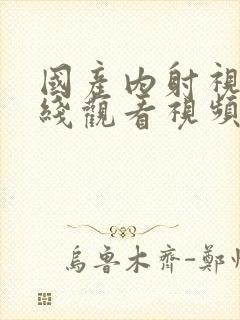 國產內射視
綫觀看視頻
烏魯木齊-鄭